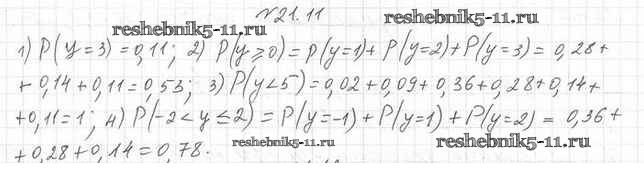 №21.11
reshebnik5-11.ru
reshebnik5-11.ru
1) P(y=3)=0,11; 2) P(y⩾0)=P(y=1)+P(y=2)+P(y=3)=0,28+
+0,14+0,11=0,53; 3) P(y<5)=0,02+0,09+0,36+0,28+0,14+
+0,11=1; 4) P(-2<y≤2)=P(y=-1)+P(y=1)+P(y=2)=0,36+
reshebnik5-11.ru
reshebnik5-11.ru
+0,28+0,14=0,78.